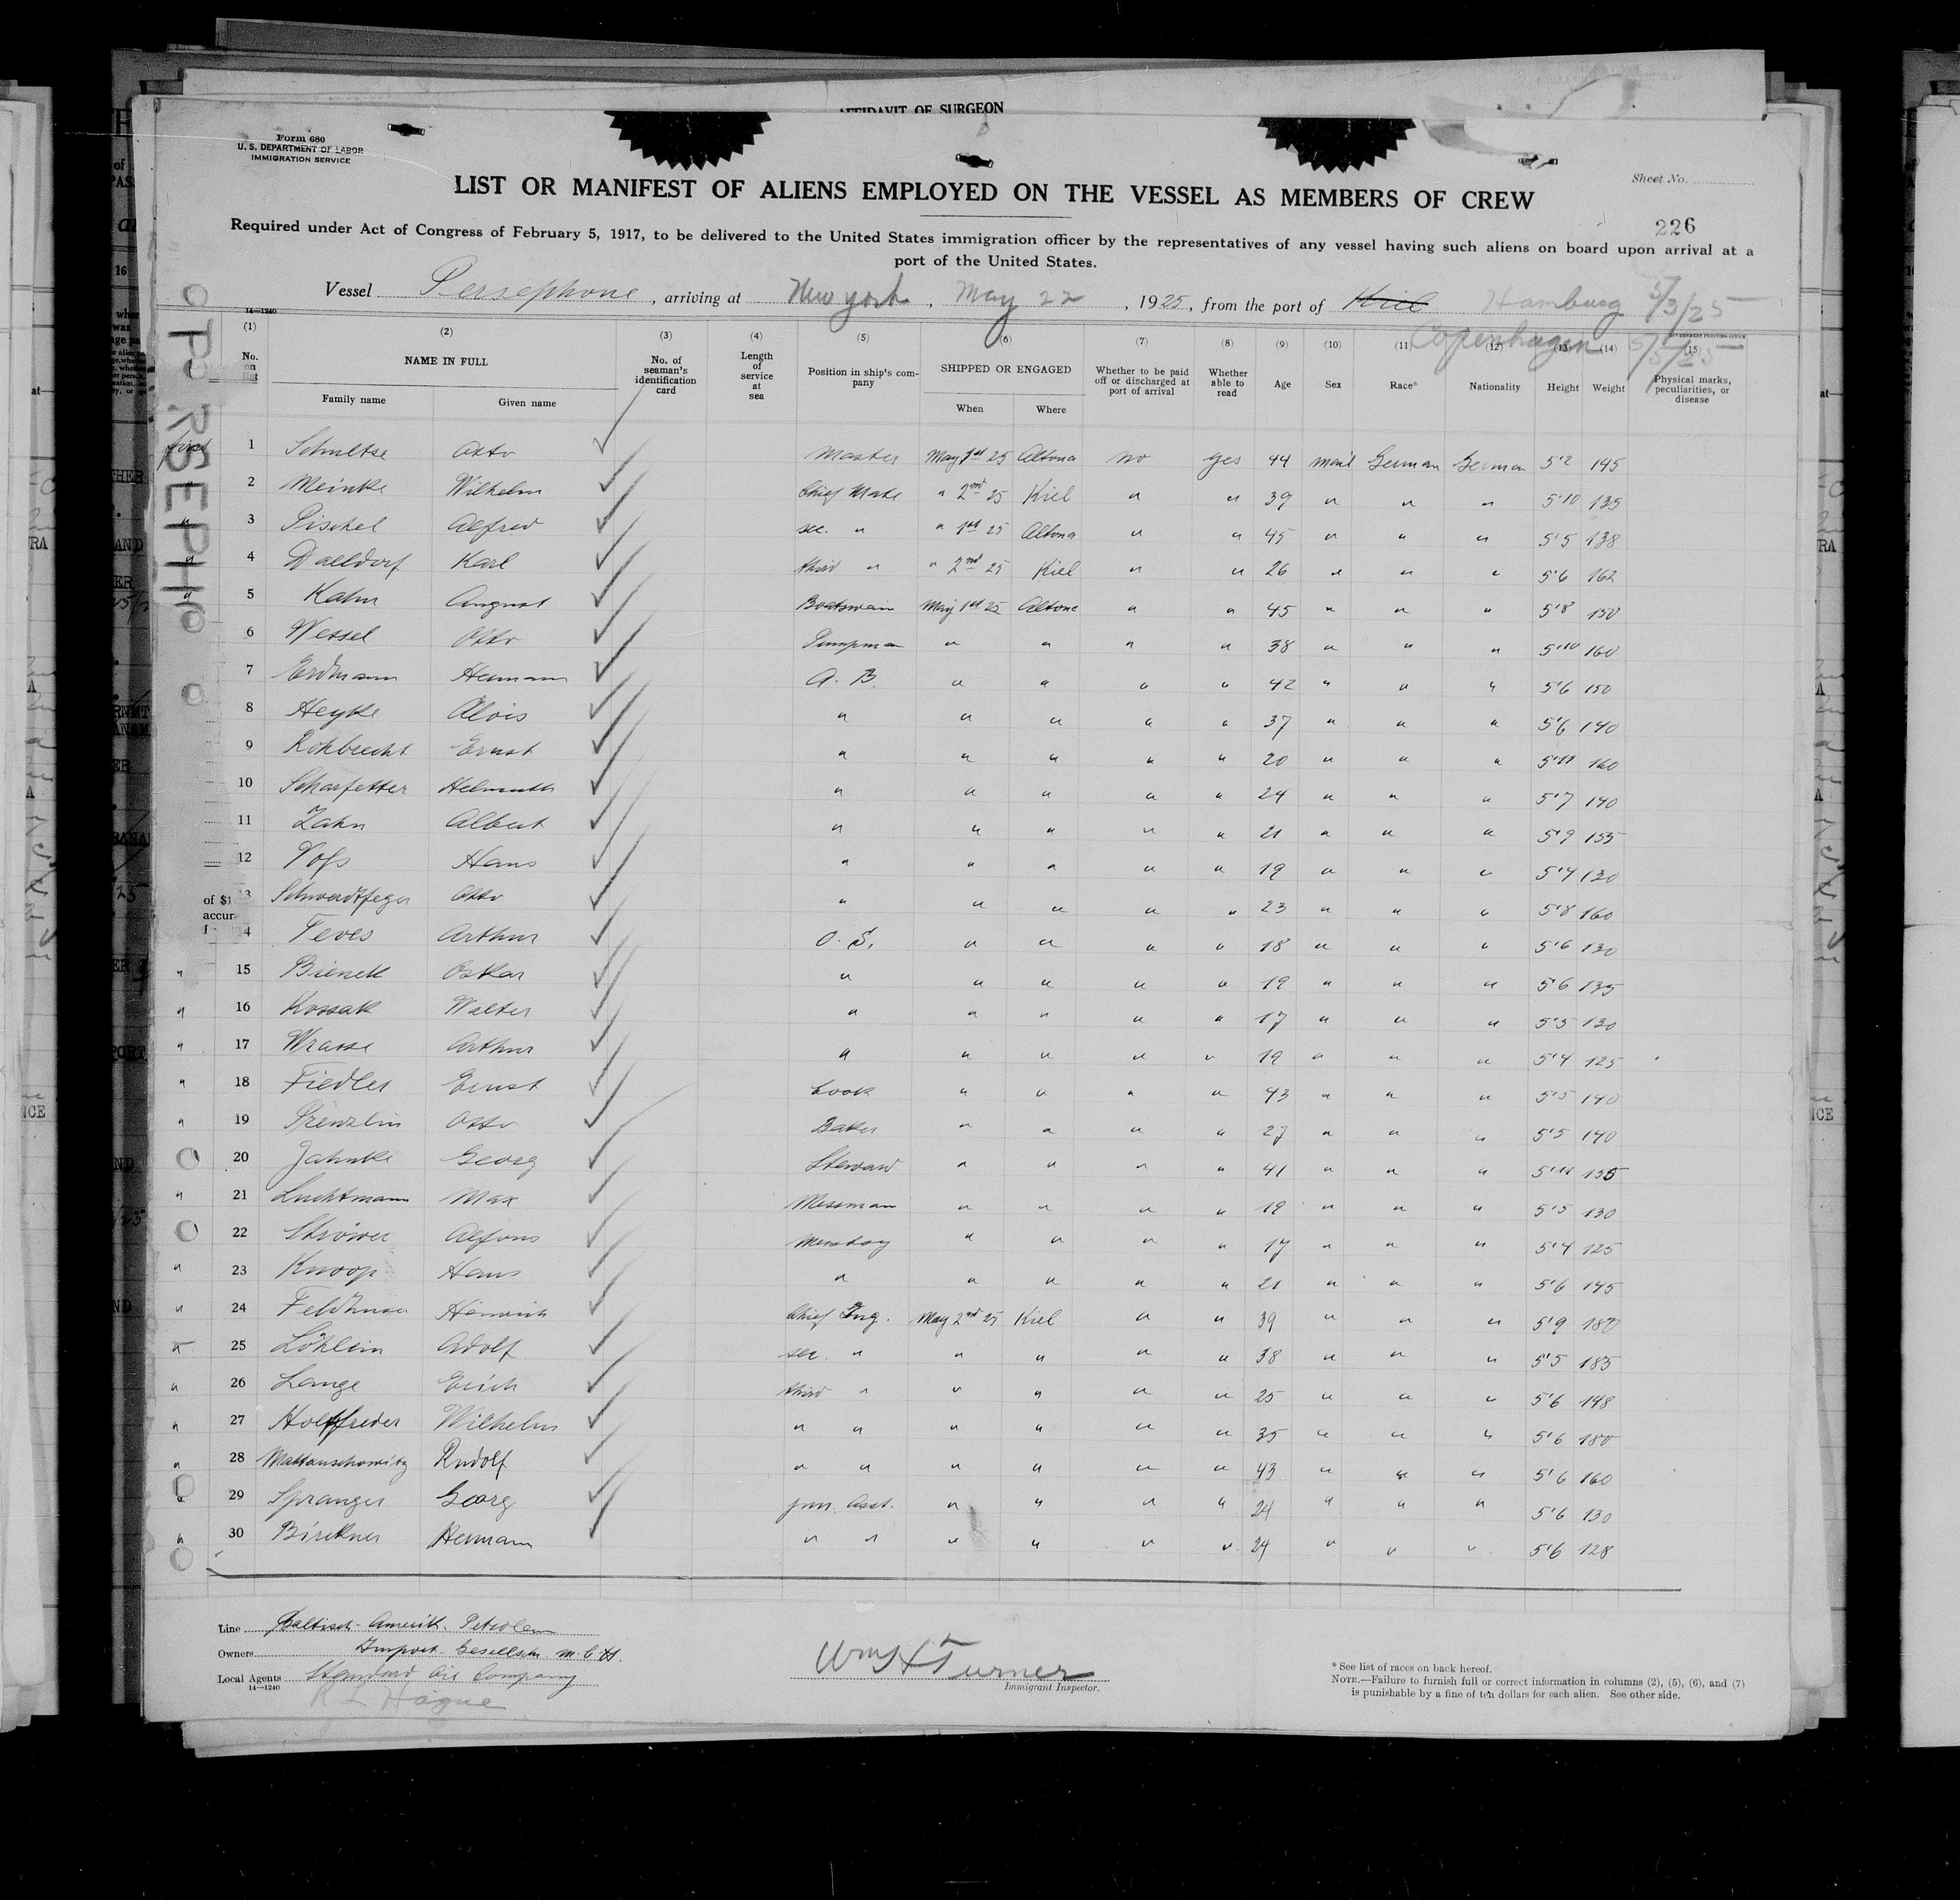 AFFIDAVIT OF SURGEON
Form 680
U. S. DEPARTMENT OF LABOR
IMMIGRATION SERVICE
LIST OR MANIFEST OF ALIENS EMPLOYED ON THE VESSEL AS MEMBERS OF CREW
Sheet No.
226
Required under Act of Congress of February 5, 1917, to be delivered to the United States immigration officer by the representatives of any vessel having such aliens on board upon arrival at a
port of the United States.
Vessel Persephone, arriving at New York, May 22, 1925, from the port of Kiel Hamburg 5/3/25
Copenhagen 5/5/25
14—1240
(1) (2) (3) (4) (5) (6) (7) (8) (9) (10) (11) (12) (13) (14) (15)
No. on list NAME IN FULL Family name Given name No. of seaman's identification card Length of service at sea Position in ship's company SHIPPED OR ENGAGED When Where Whether to be paid off or discharged at port of arrival Whether able to read Age Sex Race* Nationality Height Weight Physical marks, peculiarities, or disease
1 Schultse Otto Master May 1st 25 Altona no yes 44 male German German 5'2 145
2 Meinke Wilhelm Chief Mate " 2nd 25 Kiel " " 39 " " " 5'10 135
3 Pischel Alfred sec. " " 1st 25 Altona " " 45 " " " 5'5 138
4 Dalldorf Karl third " " 2nd 25 Kiel " " 26 " " " 5'6 162
5 Kahn August Boatswain May 1st 25 Altona " " 45 " " " 5'8 150
6 Wessel Otto Pumpman " " " " 38 " " " 5'10 160
7 Erdmann Hermann A. B. " " " " 42 " " " 5'6 150
8 Heyke Alois " " " " " 37 " " " 5'6 140
9 Rohbrecht Ernst " " " " " 20 " " " 5'11 160
10 Scharfetter Helmuth " " " " " 24 " " " 5'7 140
11 Zahn Albert " " " " " 21 " " " 5'9 155
12 Vofs Hans " " " " " 19 " " " 5'4 130
13 Schwerdtfeger Otto " " " " " 23 " " " 5'8 160
4 Teves Arthur O. S. " " " " 18 " " " 5'6 130
15 Bienek Oskar " " " " " 19 " " " 5'6 135
16 Kossak Walter " " " " " 17 " " " 5'5 130
17 Wrasse Arthur " " " " " 19 " " " 5'4 125
18 Fiedler Ernst Cook " " " " 43 " " " 5'5 140
19 Prenzlin Otto Baker " " " " 27 " " " 5'5 140
20 Jahnke Georg Steward " " " " 41 " " " 5'11 135
21 Luchtmann Max Messman " " " " 19 " " " 5'5 130
22 Ströwer Alfons Messboy " " " " 17 " " " 5'4 125
23 Knoop Hans " " " " " 21 " " " 5'6 145
24 Heinrich Chief Eng. May 2nd 25 Kiel " " 39 " " " 5'9 180
25 Löhlein Adolf sec. " " " " " 38 " " " 5'5 185
26 Lange Erich third " " " " " 25 " " " 5'6 148
27 Wilhelm " " " " " " 35 " " " 5'6 180
28 Mattauschowitz Rudolf " " " " " " 43 " " " 5'6 160
29 Spranger Georg jun. Asst. " " " " 24 " " " 5'6 130
30 Birkner Hermann " " " " " " 24 " " " 5'6 128
PERSEPHO
Line Baltisch-Amerik. Petroleum
Owners Import Gesellsch. m.b.H.
Local Agents Standard Oil Company
14—1240
R L Hague
Wm H Turner
Immigrant Inspector.
* See list of races on back hereof.
NOTE.—Failure to furnish full or correct information in columns (2), (5), (6), and (7)
is punishable by a fine of ten dollars for each alien. See other side.